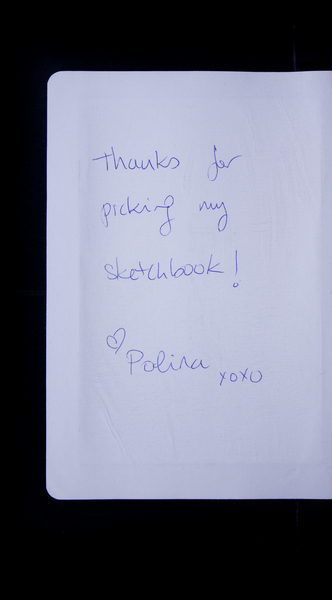 thanks for
picking my
sketchbook!
♡ Polina
xoxo